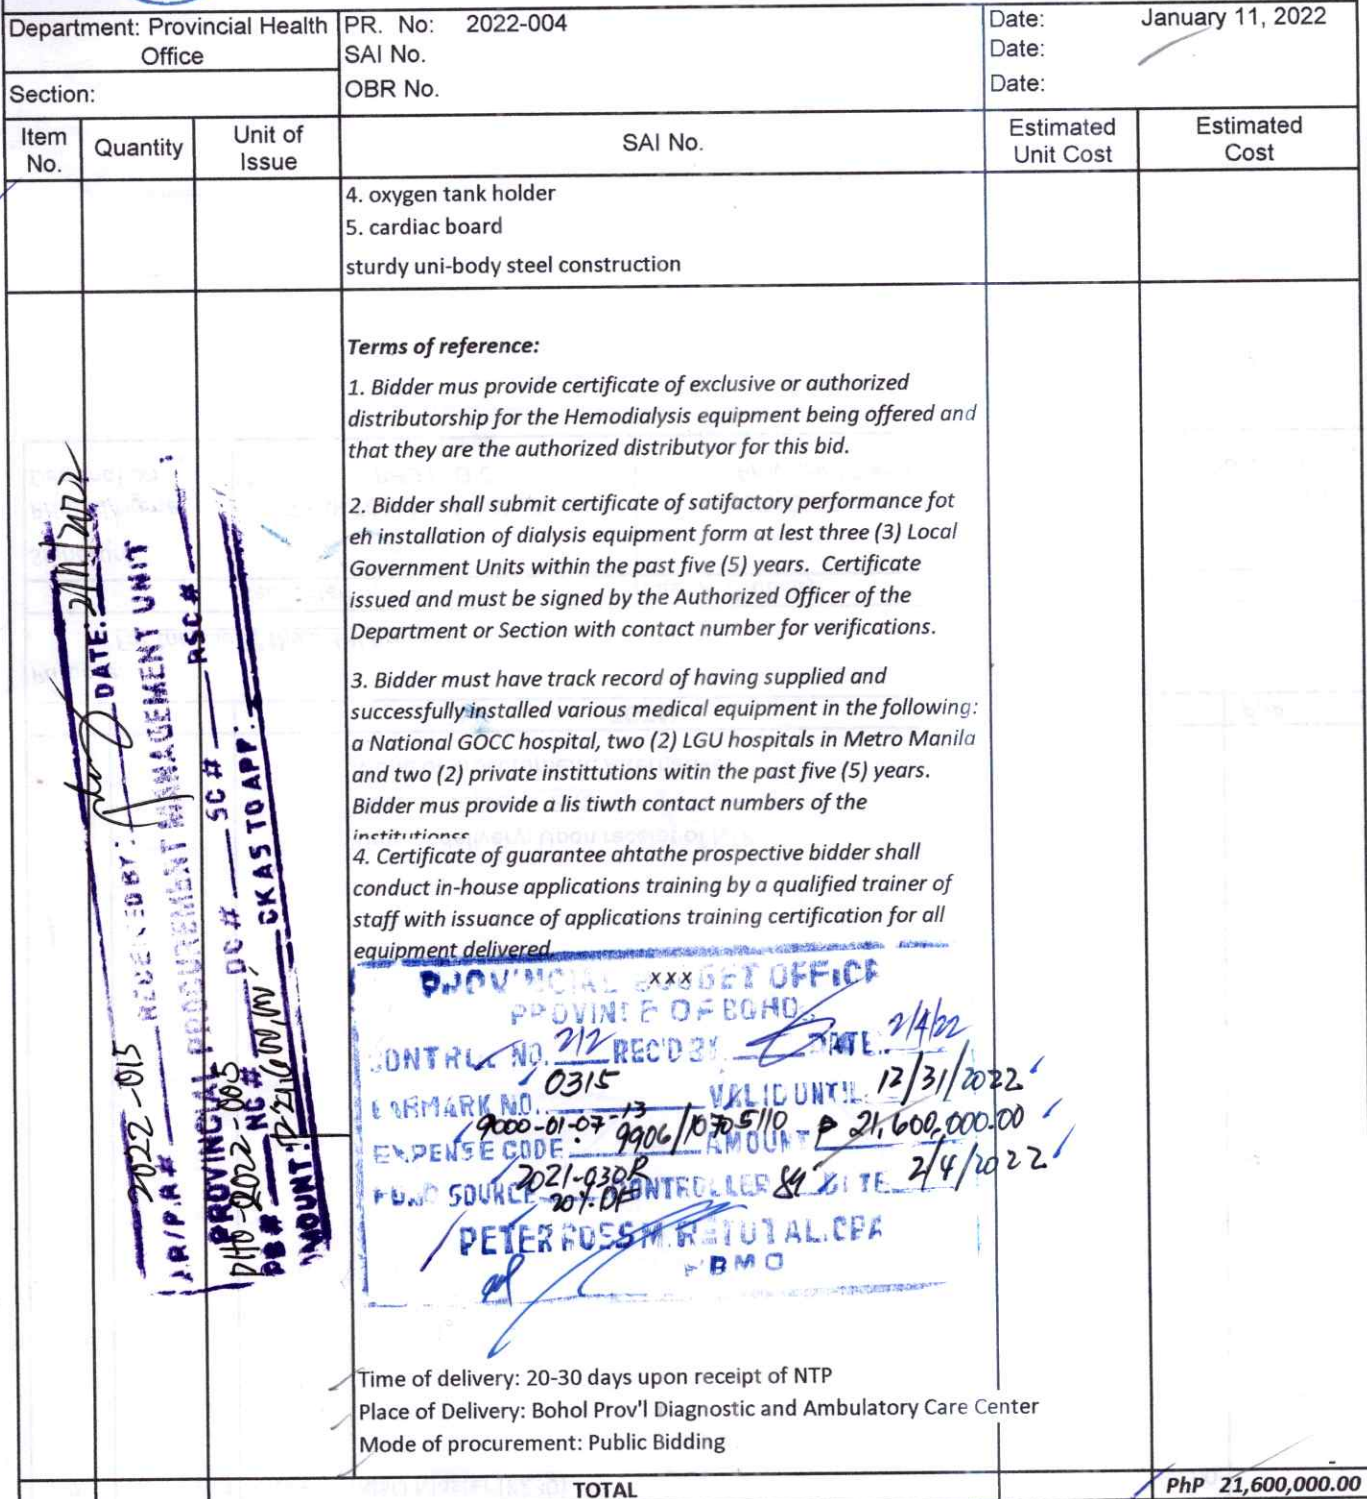 Department: Provincial Health
Office
PR. No: 2022-004
SAI No.
OBR No.
Date: January 11, 2022
Date:
Date:
Section:
Item No.
Quantity
Unit of Issue
SAI No.
Estimated Unit Cost
Estimated Cost
4. oxygen tank holder
5. cardiac board
sturdy uni-body steel construction
Terms of reference:
1. Bidder mus provide certificate of exclusive or authorized
distributorship for the Hemodialysis equipment being offered and
that they are the authorized distributyor for this bid.
2. Bidder shall submit certificate of satifactory performance fot
eh installation of dialysis equipment form at lest three (3) Local
Government Units within the past five (5) years. Certificate
issued and must be signed by the Authorized Officer of the
Department or Section with contact number for verifications.
3. Bidder must have track record of having supplied and
successfully installed various medical equipment in the following:
a National GOCC hospital, two (2) LGU hospitals in Metro Manila
and two (2) private instittutions witin the past five (5) years.
Bidder mus provide a lis tiwth contact numbers of the
institutionss
4. Certificate of guarantee ahtathe prospective bidder shall
conduct in-house applications training by a qualified trainer of
staff with issuance of applications training certification for all
equipment delivered.
xxx
PROVINCIAL BUDGET OFFICE
PROVINCE OF BOHOL
CONTROL NO. 212 REC'D BY DATE 2/4/22
EARMARK NO. 0315 VALID UNTIL 12/31/2022
9000-01-07-13
EXPENSE CODE 9906/10705110 AMOUNT ₱ 21,600,000.00
FUND SOURCE 2021-030R CONTROLLER DATE 2/4/2022
20% DF
PETER ROSS M. RETUTAL, CPA
PBMO
2022-015 RECEIVED BY: DATE:
P.R/P.R.A #
PROVINCIAL PROCUREMENT MANAGEMENT UNIT
PHO-2022-005
PB # NC # DC # SC # RSC #
AMOUNT: CKAS TO APP:
Time of delivery: 20-30 days upon receipt of NTP
Place of Delivery: Bohol Prov'l Diagnostic and Ambulatory Care Center
Mode of procurement: Public Bidding
-
TOTAL PhP 21,600,000.00